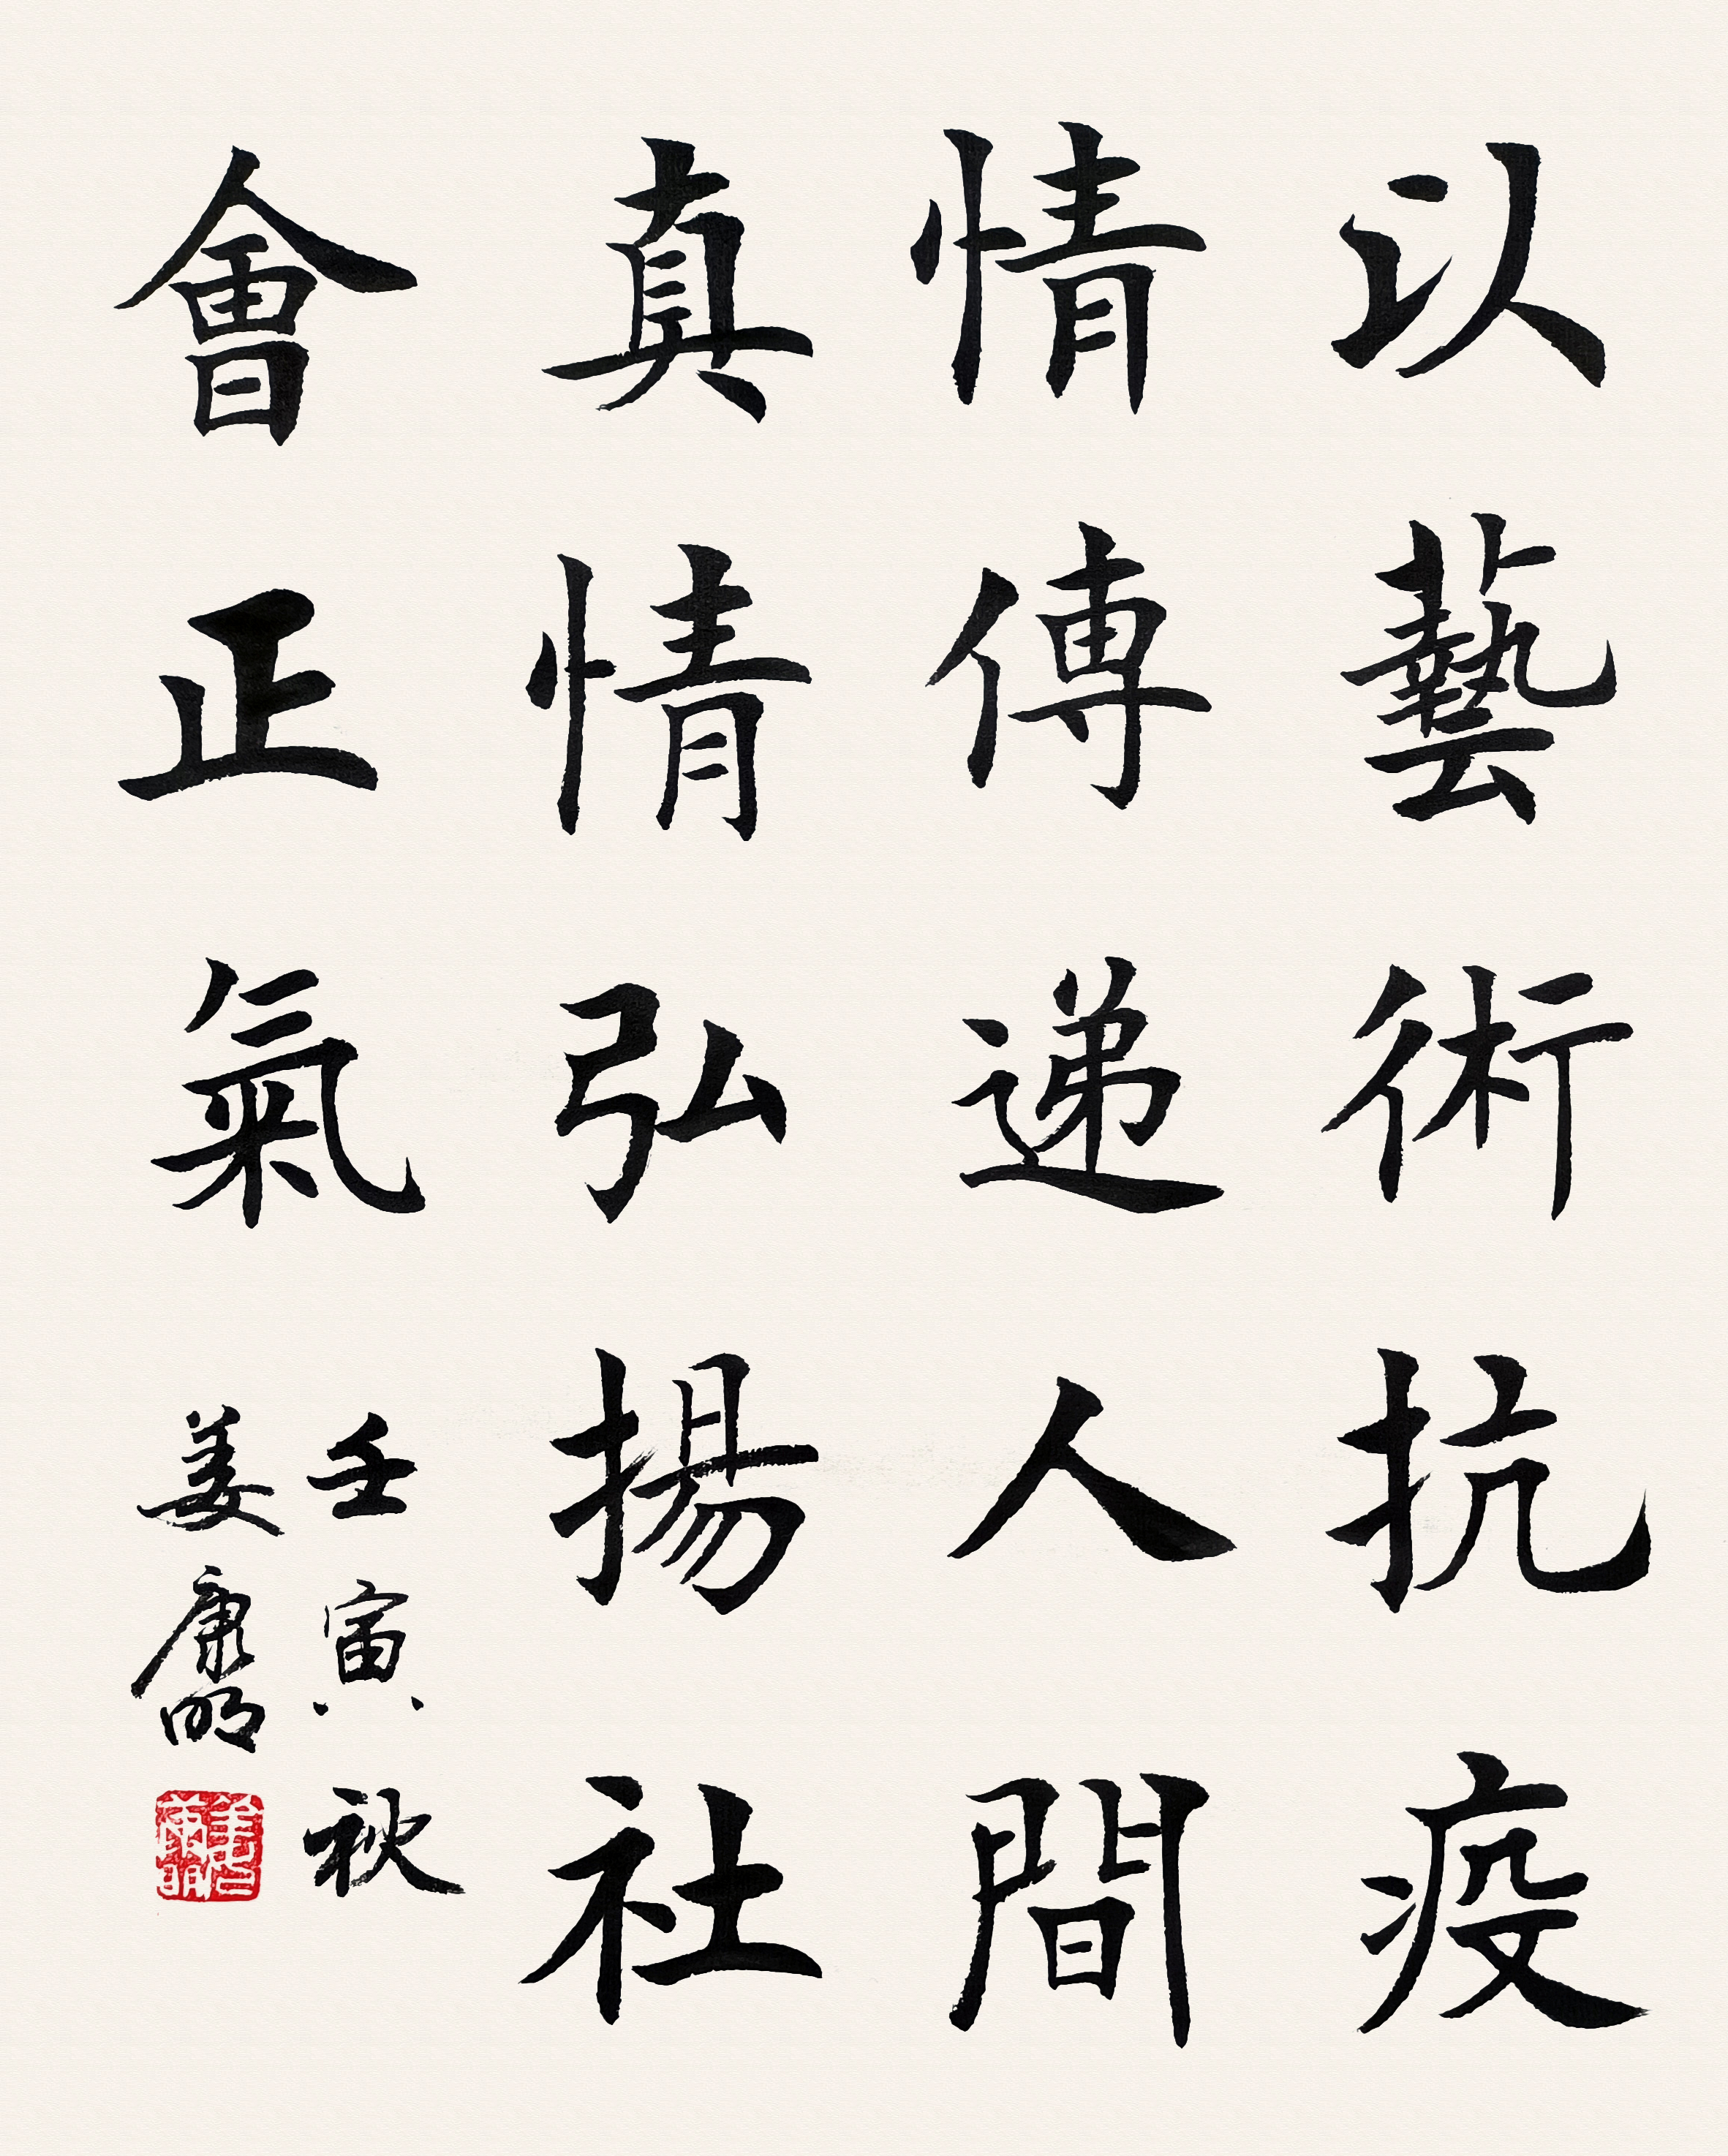 以藝術抗疫
情傳递人間
真情弘揚社
會正氣
壬寅秋
姜康明